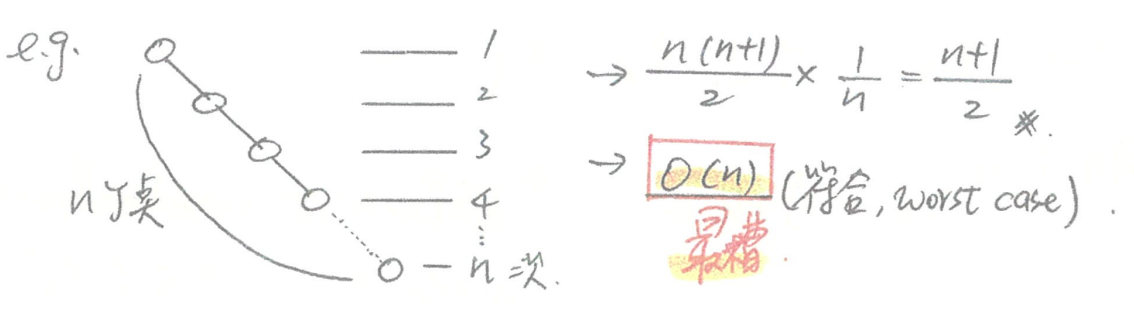 e.g.
1
2
3
4
⋮
n 次.
n 個点
→ n(n+1)/2 × 1/n = (n+1)/2 ※.
→ O(n) (符合, worst case).
最糟.